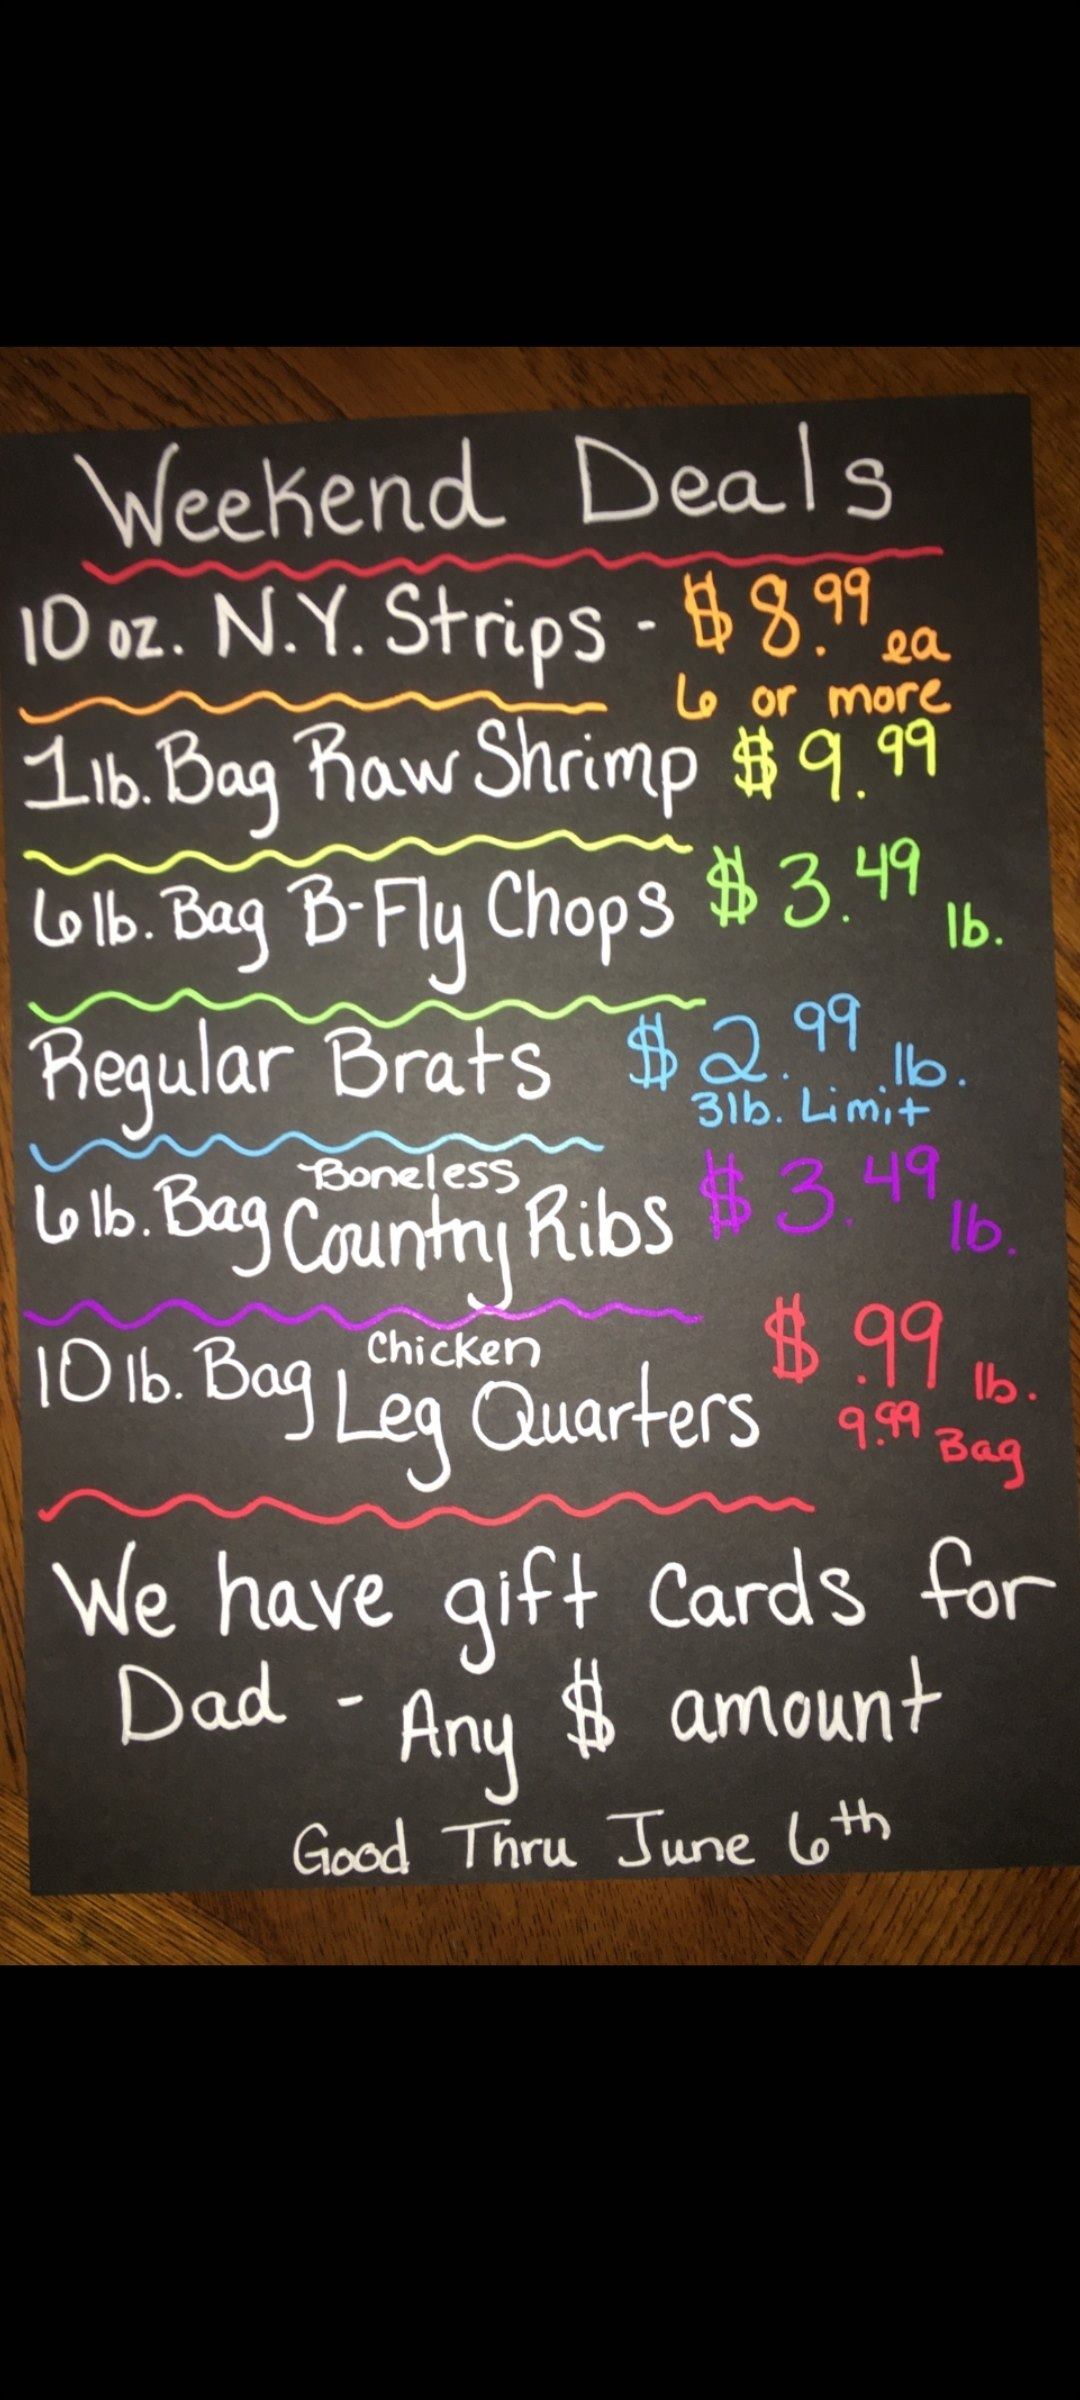 Weekend Deals
10 oz. N.Y. Strips - $8.99 ea
6 or more
1 lb. Bag Raw Shrimp $9.99
6 lb. Bag B-Fly Chops $3.49 lb.
Regular Brats $2.99 lb.
3 lb. Limit
6 lb. Bag Boneless Country Ribs $3.49 lb.
10 lb. Bag Chicken Leg Quarters $.99 lb.
9.99 Bag
We have gift Cards for
Dad - Any $ amount
Good Thru June 6th